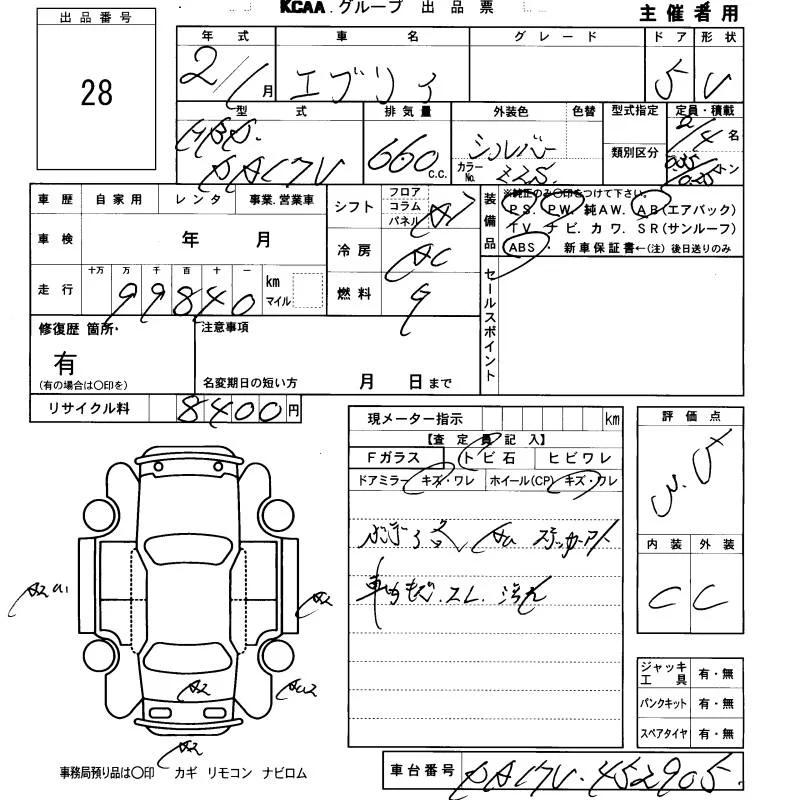 KCAA.グループ 出品票
主催者用
出品番号
28
年式 車名 グレード ドア 形状
2/1月 エブリイ 5 V
型式 排気量 外装色 色替 型式指定 定員・積載
HBD. 660 c.c. シルバー 2/4名
DA17V カラーNo. Z2S 類別区分 トン
車歴 自家用 レンタ 事業.営業車
シフト フロア コラム パネル AT
装備品
※純正のみ〇印をつけて下さい。
P S. P W. 純A W. A B(エアバック)
T V. ナ ビ. カ ワ. S R(サンルーフ)
ABS ・ 新車保証書←(注) 後日送りのみ
車検 年 月
冷房 AC
走行 十万 万 千 百 十 一 km マイル
99840
燃料 G
セールスポイント
修復歴 箇所・
有
(有の場合は〇印を)
注意事項
名変期日の短い方 月 日まで
リサイクル料 8400円
現メーター指示 km
【査定員記入】
Fガラス トビ石 ヒビワレ
ドアミラー キズ・ワレ ホイール(CP) キズ・ワレ
ステッカーアト
スレ. 汚れ
評価点
内装 外装
C C
A2
A2
A2
ジャッキ工具 有・無
パンクキット 有・無
スペアタイヤ 有・無
事務局預り品は〇印 カギ リモコン ナビロム
車台番号 DA17V-452905.